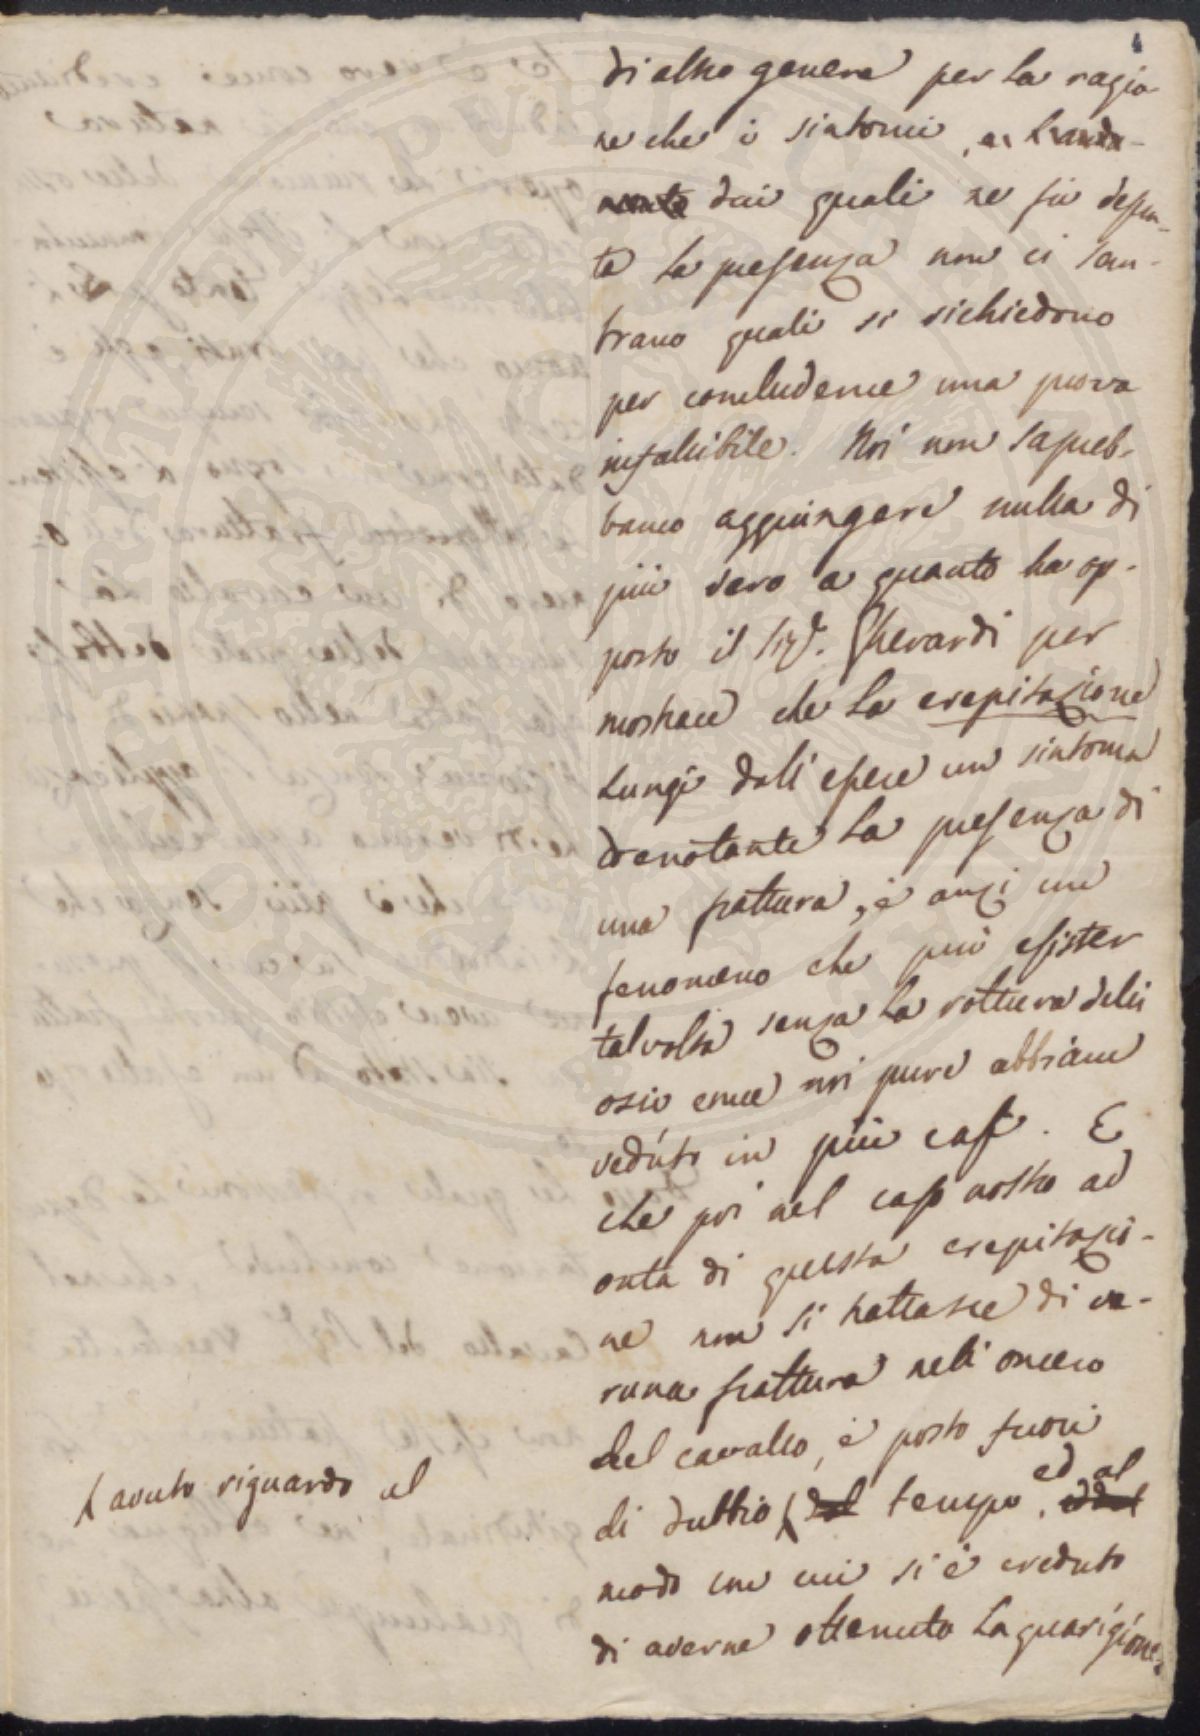 4
di altro genere per la ragio-
ne che i sintomi,
dai quali ne fu desun-
ta la presenza non ci sem-
brano quali si richiedono
per concluderne una prova
infallibile. Noi non sapreb-
bamo aggiungere nulla di
più vero a quanto ha op-
posto il Sigr. Gherardi per
mostrare che la crepitazione
lungi dall' essere un sintoma
denotante la presenza di
una frattura, è anzi un
fenomeno che può esister
talvolta senza la rottura dell'
osso come noi pure abbiam
veduto in più casi. E
che poi nel caso nostro ad
onta di questa crepitazio-
ne non si trattasse di ve-
runa frattura nell' omero
del cavallo, è posto fuori
di dubbio (del tempo, ed al
modo con cui si è creduto
di averne ottenuto la guarigione.
(avuto riguardo al